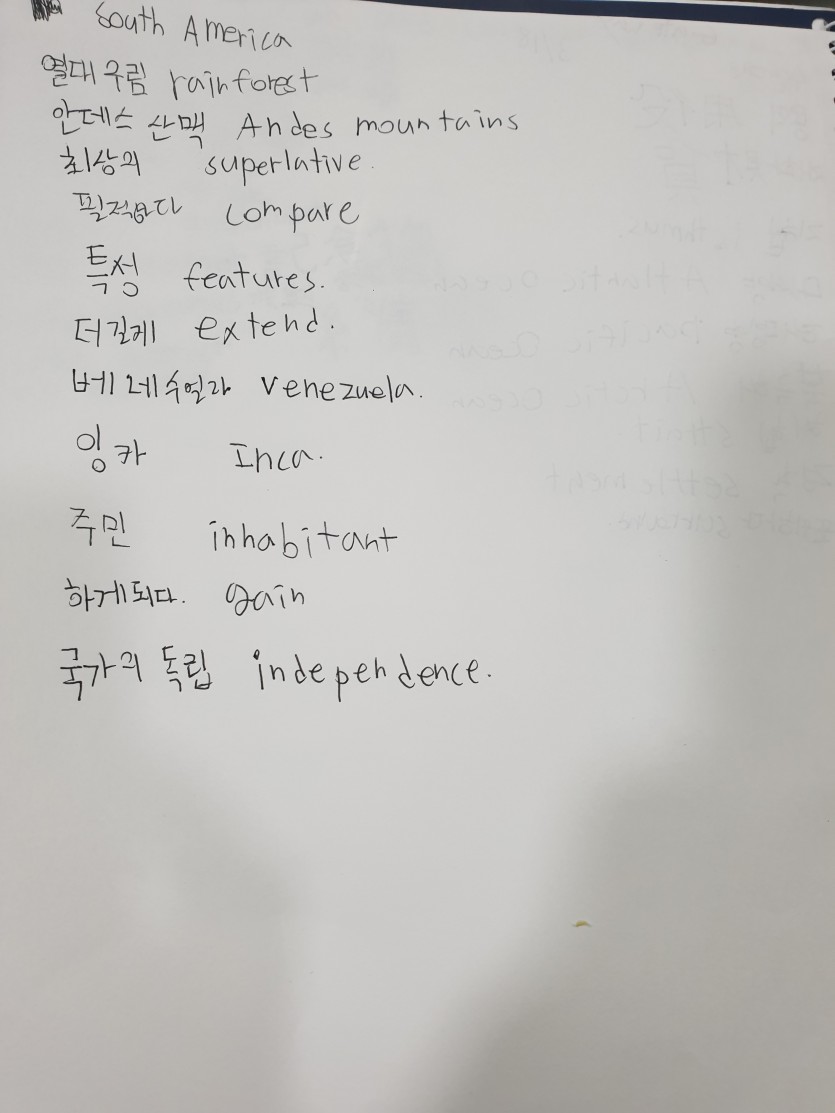 South America
열대 우림 rainforest
안데스 산맥 Andes mountains
최상의 superlative.
필적하다 compare
특징 features.
더길게 extend.
베네수엘라 venezuela.
잉카 Inca.
주민 inhabitant
하게되다. gain
국가의 독립 independence.